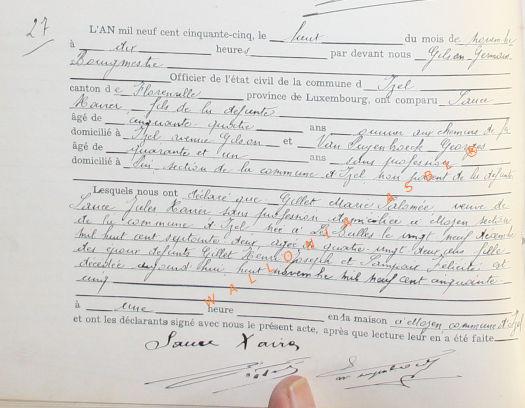 27
L'AN mil neuf cent cinquante-cinq, le huit du mois de novembre
à dix heures par devant nous Gilson Germain
Bourgmestre
Officier de l'état civil de la commune d'Izel
canton de Florenville province de Luxembourg, ont comparu Sauce
Xavier, fils de la défunte
âgé de cinquante quatre ans ouvrier aux chemins de fer
domicilié à Izel avenue Gilson et Van Puyenbroeck Georges
âgé de quarante et un ans sans profession
domicilié à section de la commune d'Izel, non parent de la défunte
Lesquels nous ont déclaré que Gillet Marie Salomée veuve de
Sauce Jules Xavier sans profession domiciliée à Moyen section
de la commune d'Izel née à Les Bulles le vingt neuf décembre
mil huit cent septante deux, agée de quatre vingt deux ans fille
des époux défunts Gillet Henri Joseph et Félicité est
décédée aujourd'hui huit novembre mil neuf cent cinquante
cinq
à une heure en la maison à Moyen commune d'Izel
et ont les déclarants signé avec nous le présent acte, après que lecture leur en a été faite
Sauce Xavier
WALLONIA ASBL ©